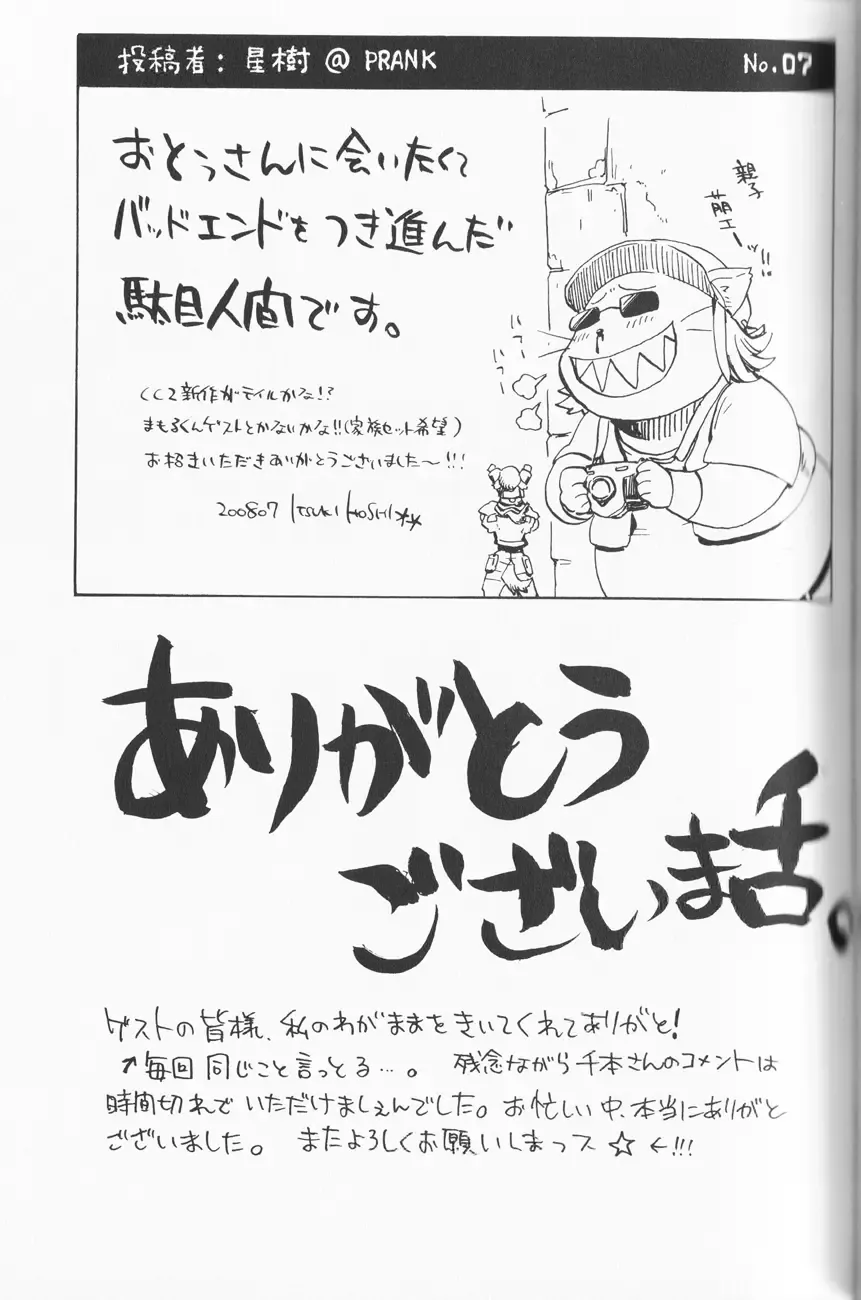 投稿者: 星樹 @ PRANK
No.07
おとうさんに会いたくて
バッドエンドをつき進んだ
駄目人間です。
親子
萌エーッ!!
CC2新作がテイルかな!?
まもるくんゲストとかないかな!!(家族セット希望)
お招きいただきありがとうございました〜!!!
200807 Itsuki Hoshi
ありがとう
ございま舌。
ゲストの皆様、私のわがままをきいてくれてありがと!
↑毎回同じこと言っとる…。 残念ながら千本さんのコメントは
時間切れでいただけましぇんでした。お忙しい中、本当にありがと
ございました。 またよろしくお願いしまっス☆←!!!